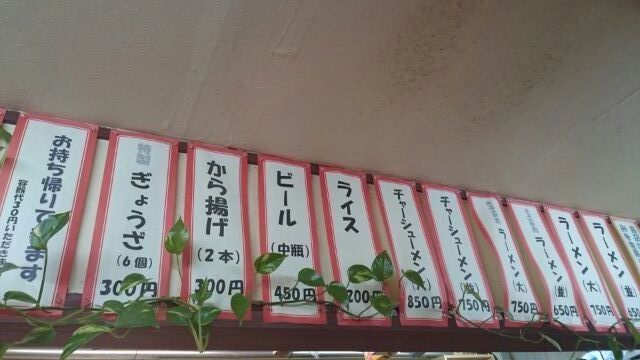 お持ち帰りできます
容器代30円いただきます
特製 ぎょうざ (6個) 300円
から揚げ (2本) 300円
ビール (中瓶) 450円
ライス 200円
チャーシューメン (大) 850円
チャーシューメン (並) 750円
ラーメン (大) 750円
ラーメン (並) 650円
ラーメン (大) 750円
ラーメン (並) 650円